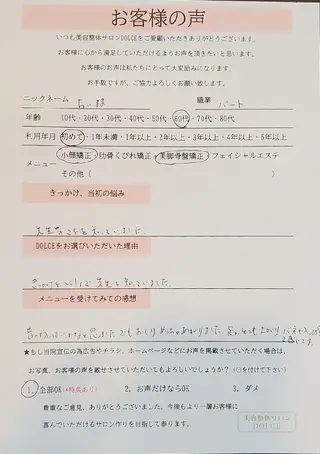 お客様の声
いつも美容整体サロンDOLCEをご愛顧いただきありがとうございます。
お客様に心から満足していただけるようお声を頂きたいと思います。
お客様のお声は私たちにとって大変励みになります。
お手数ですが、ご協力よろしくお願い致します。
ニックネーム 職業 パート
年齢 10代・20代・30代・40代・50代・60代・70代・80代
利用年月 初めて・1年未満・1年以上・2年以上・3年以上・4年以上・5年以上
メニュー 小顔矯正・肋骨くびれ矯正・美脚骨盤矯正・フェイシャルエステ
その他( )
きっかけ、当初の悩み
DOLCEをお選びいただいた理由
メニューを受けてみての感想
★もし当院宣伝の為広告やチラシ、ホームページなどにお声を掲載させていただく場合は、
お写真、お客様の声を載せさせていただいてもよろしいでしょうか?(○を付けて下さい)
1、全部OK(*特典あり) 2、お声だけならOK 3、ダメ
貴重なご意見、ありがとうございました。今後もより一層お客様に
喜んでいただけるサロン作りを目指して参ります。
美容整体サロン
DOLCE